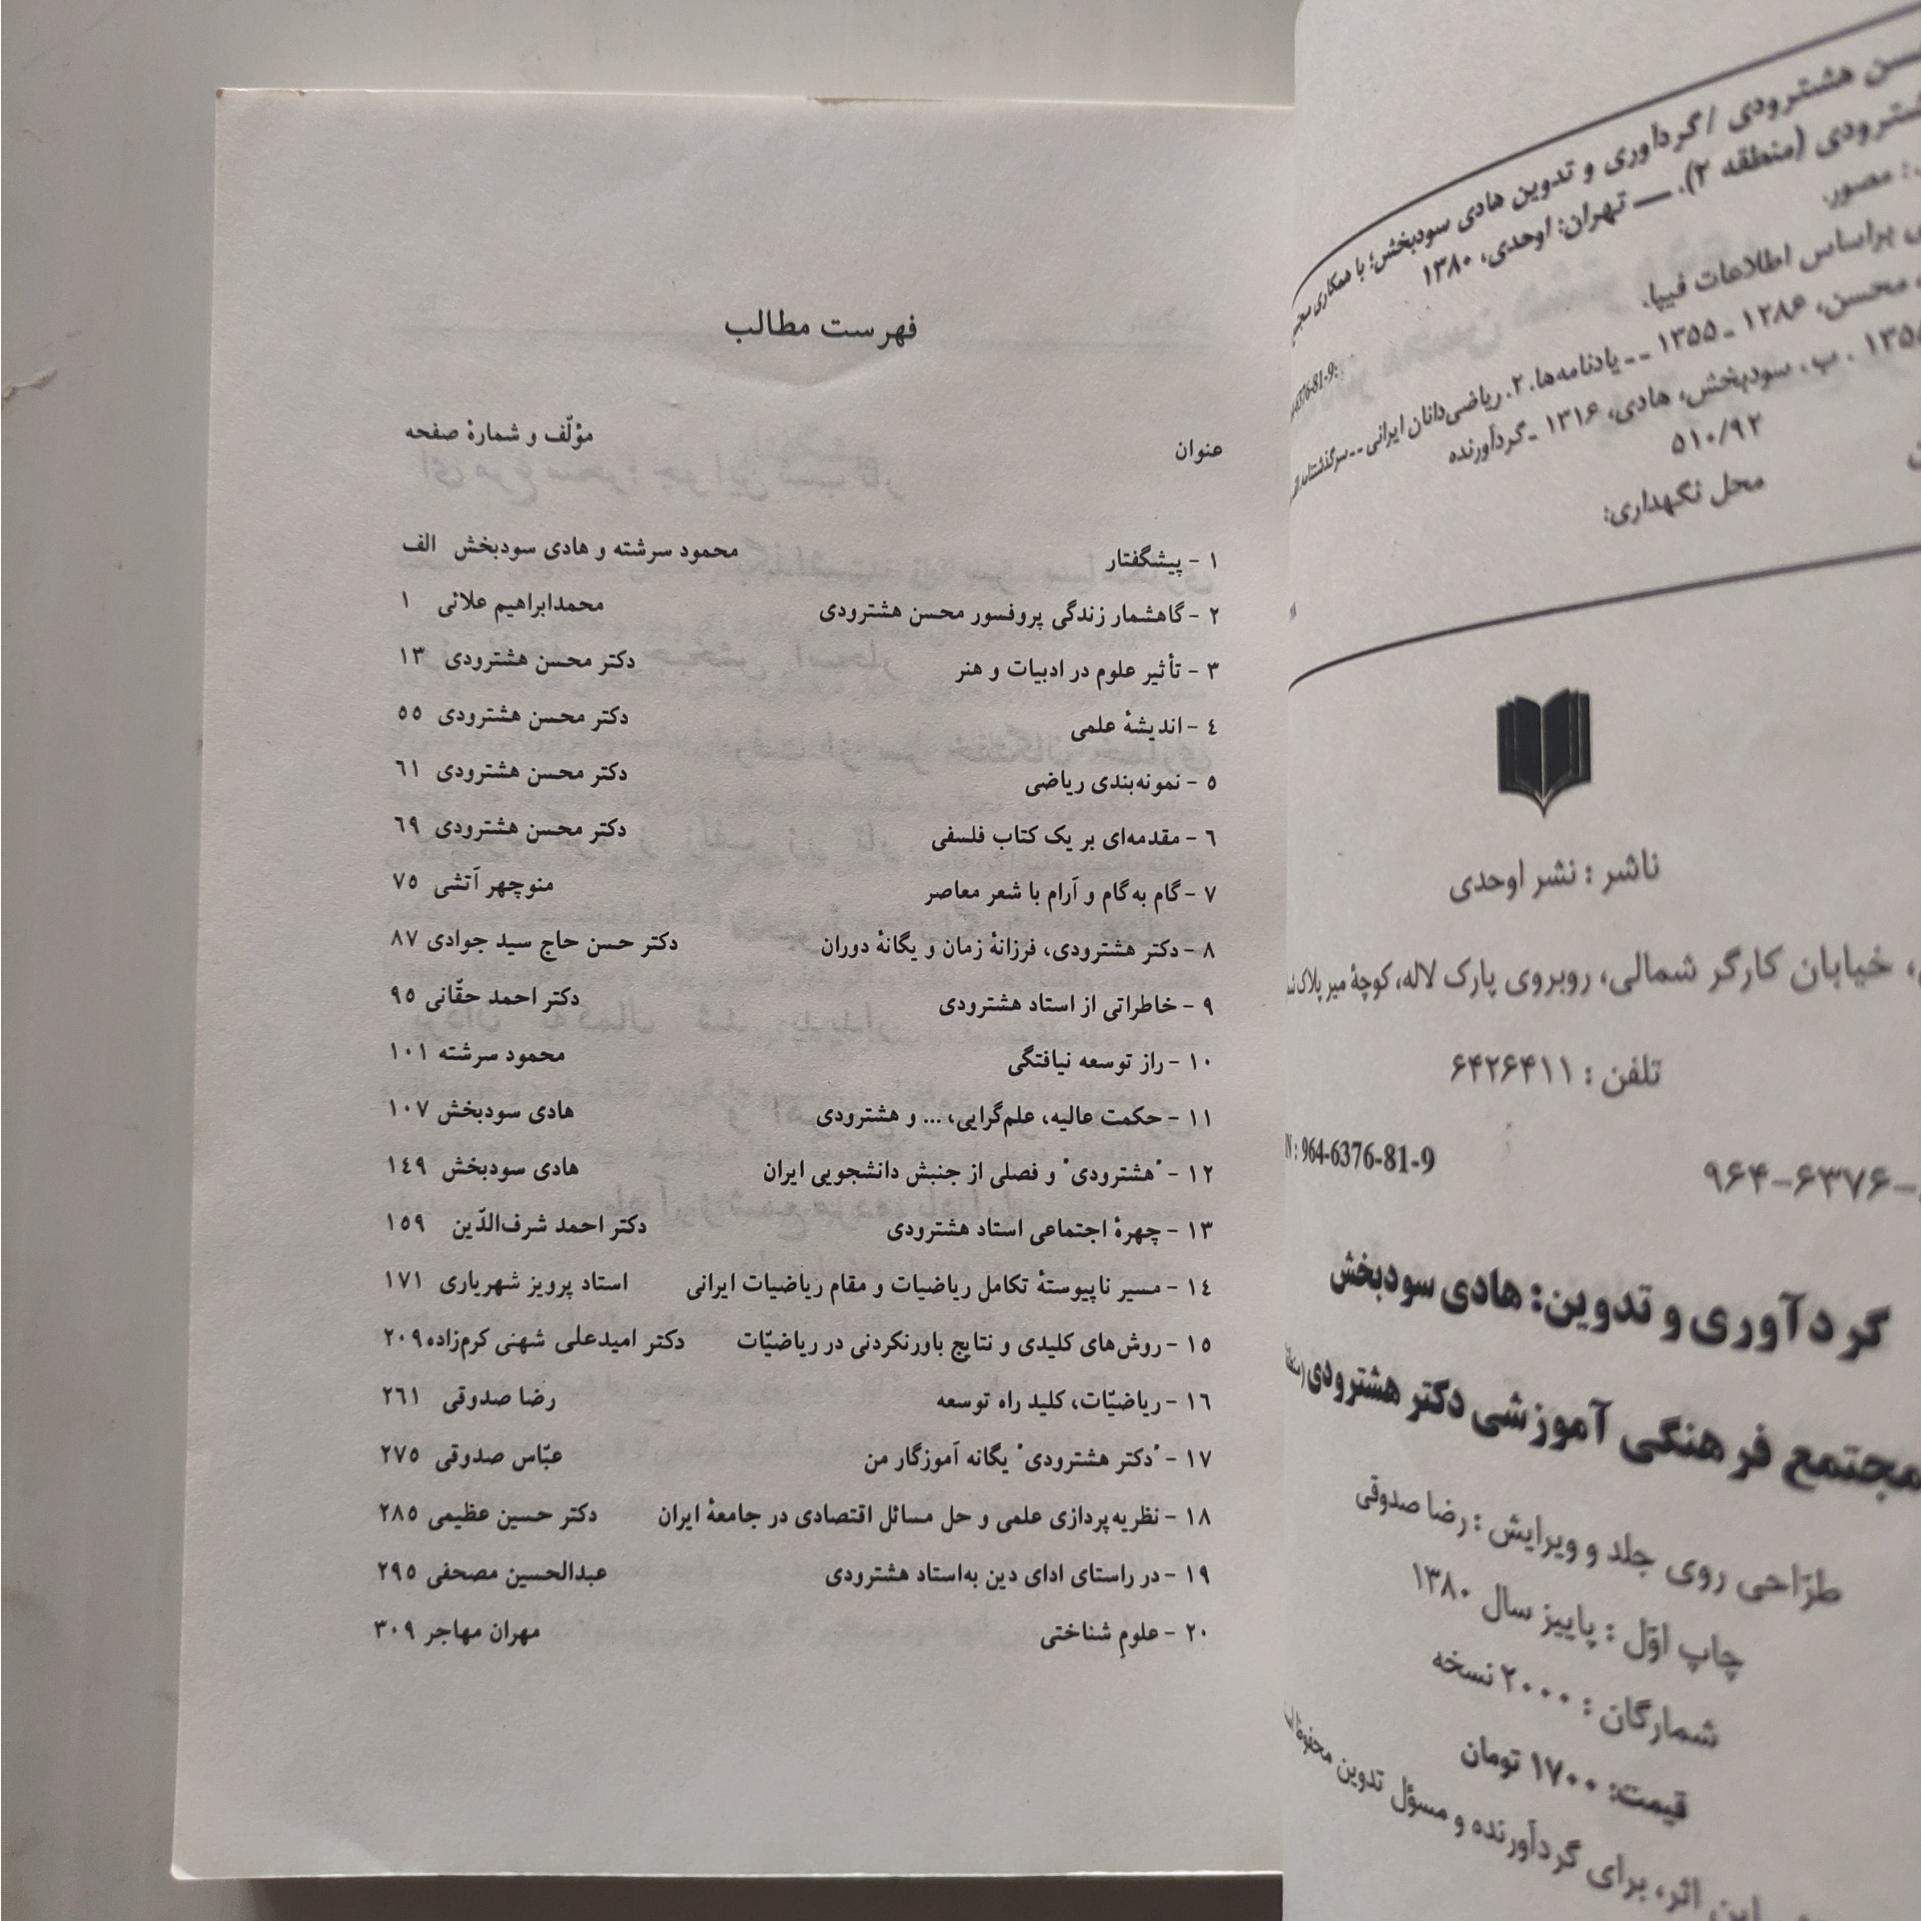 سن هشترودی / گردآوری و تدوین هادی سودبخش؛ با همکاری
شترودی (منطقه ۲). — تهران: اوحدی، ۱۳۸۰
: مصور.
براساس اطلاعات فیپا.
محسن، ۱۲۸۶ - ۱۳۵۵ -- یادنامه‌ها. ۲. ریاضی‌دانان ایرانی -- سرگذشتنامه.
. ب. سودبخش، هادی، ۱۳۱۶ - گردآورنده
۵۱۰/۹۲
محل نگهداری:
ناشر : نشر اوحدی
، خیابان کارگر شمالی، روبروی پارک لاله، کوچهٔ میر پلاک
تلفن : ۶۴۲۶۴۱۱
۹۶۴-۶۳۷۶- N : 964-6376-81-9
گردآوری و تدوین: هادی سودبخش
مجتمع فرهنگی آموزشی دکتر هشترودی
طرّاحی روی جلد و ویرایش : رضا صدوقی
چاپ اوّل : پاییز سال ۱۳۸۰
شمارگان : ۲۰۰۰ نسخه
قیمت: ۱۷۰۰ تومان
این اثر، برای گردآورنده و مسؤل تدوین محفوظ
فهرست مطالب
عنوان مؤلّف و شمارهٔ صفحه
۱ - پیشگفتار محمود سرشته و هادی سودبخش الف
۲ - گاهشمار زندگی پروفسور محسن هشترودی محمدابراهیم علائی ۱
۳ - تأثیر علوم در ادبیات و هنر دکتر محسن هشترودی ۱۳
٤ - اندیشهٔ علمی دکتر محسن هشترودی ٥٥
٥ - نمونه‌بندی ریاضی دکتر محسن هشترودی ٦۱
٦ - مقدمه‌ای بر یک کتاب فلسفی دکتر محسن هشترودی ٦۹
۷ - گام به‌گام و آرام با شعر معاصر منوچهر آتشی ۷٥
۸ - دکتر هشترودی، فرزانهٔ زمان و یگانهٔ دوران دکتر حسن حاج سید جوادی ۸۷
۹ - خاطراتی از استاد هشترودی دکتر احمد حقّانی ۹٥
۱۰ - راز توسعه نیافتگی محمود سرشته ۱۰۱
۱۱ - حکمت عالیه، علم‌گرایی، ... و هشترودی هادی سودبخش ۱۰۷
۱۲ - "هشترودی" و فصلی از جنبش دانشجویی ایران هادی سودبخش ۱٤۹
۱۳ - چهرهٔ اجتماعی استاد هشترودی دکتر احمد شرف‌الدّین ۱٥۹
۱٤ - مسیر ناپیوستهٔ تکامل ریاضیات و مقام ریاضیات ایرانی استاد پرویز شهریاری ۱۷۱
۱٥ - روش‌های کلیدی و نتایج باورنکردنی در ریاضیّات دکتر امیدعلی شهنی کرم‌زاده ۲۰۹
۱٦ - ریاضیّات، کلید راه توسعه رضا صدوقی ۲٦۱
۱۷ - "دکتر هشترودی" یگانه آموزگار من عبّاس صدوقی ۲۷٥
۱۸ - نظریه‌پردازی علمی و حل مسائل اقتصادی در جامعهٔ ایران دکتر حسین عظیمی ۲۸٥
۱۹ - در راستای ادای دین به‌استاد هشترودی عبدالحسین مصحفی ۲۹٥
۲۰ - علومِ شناختی مهران مهاجر ۳۰۹